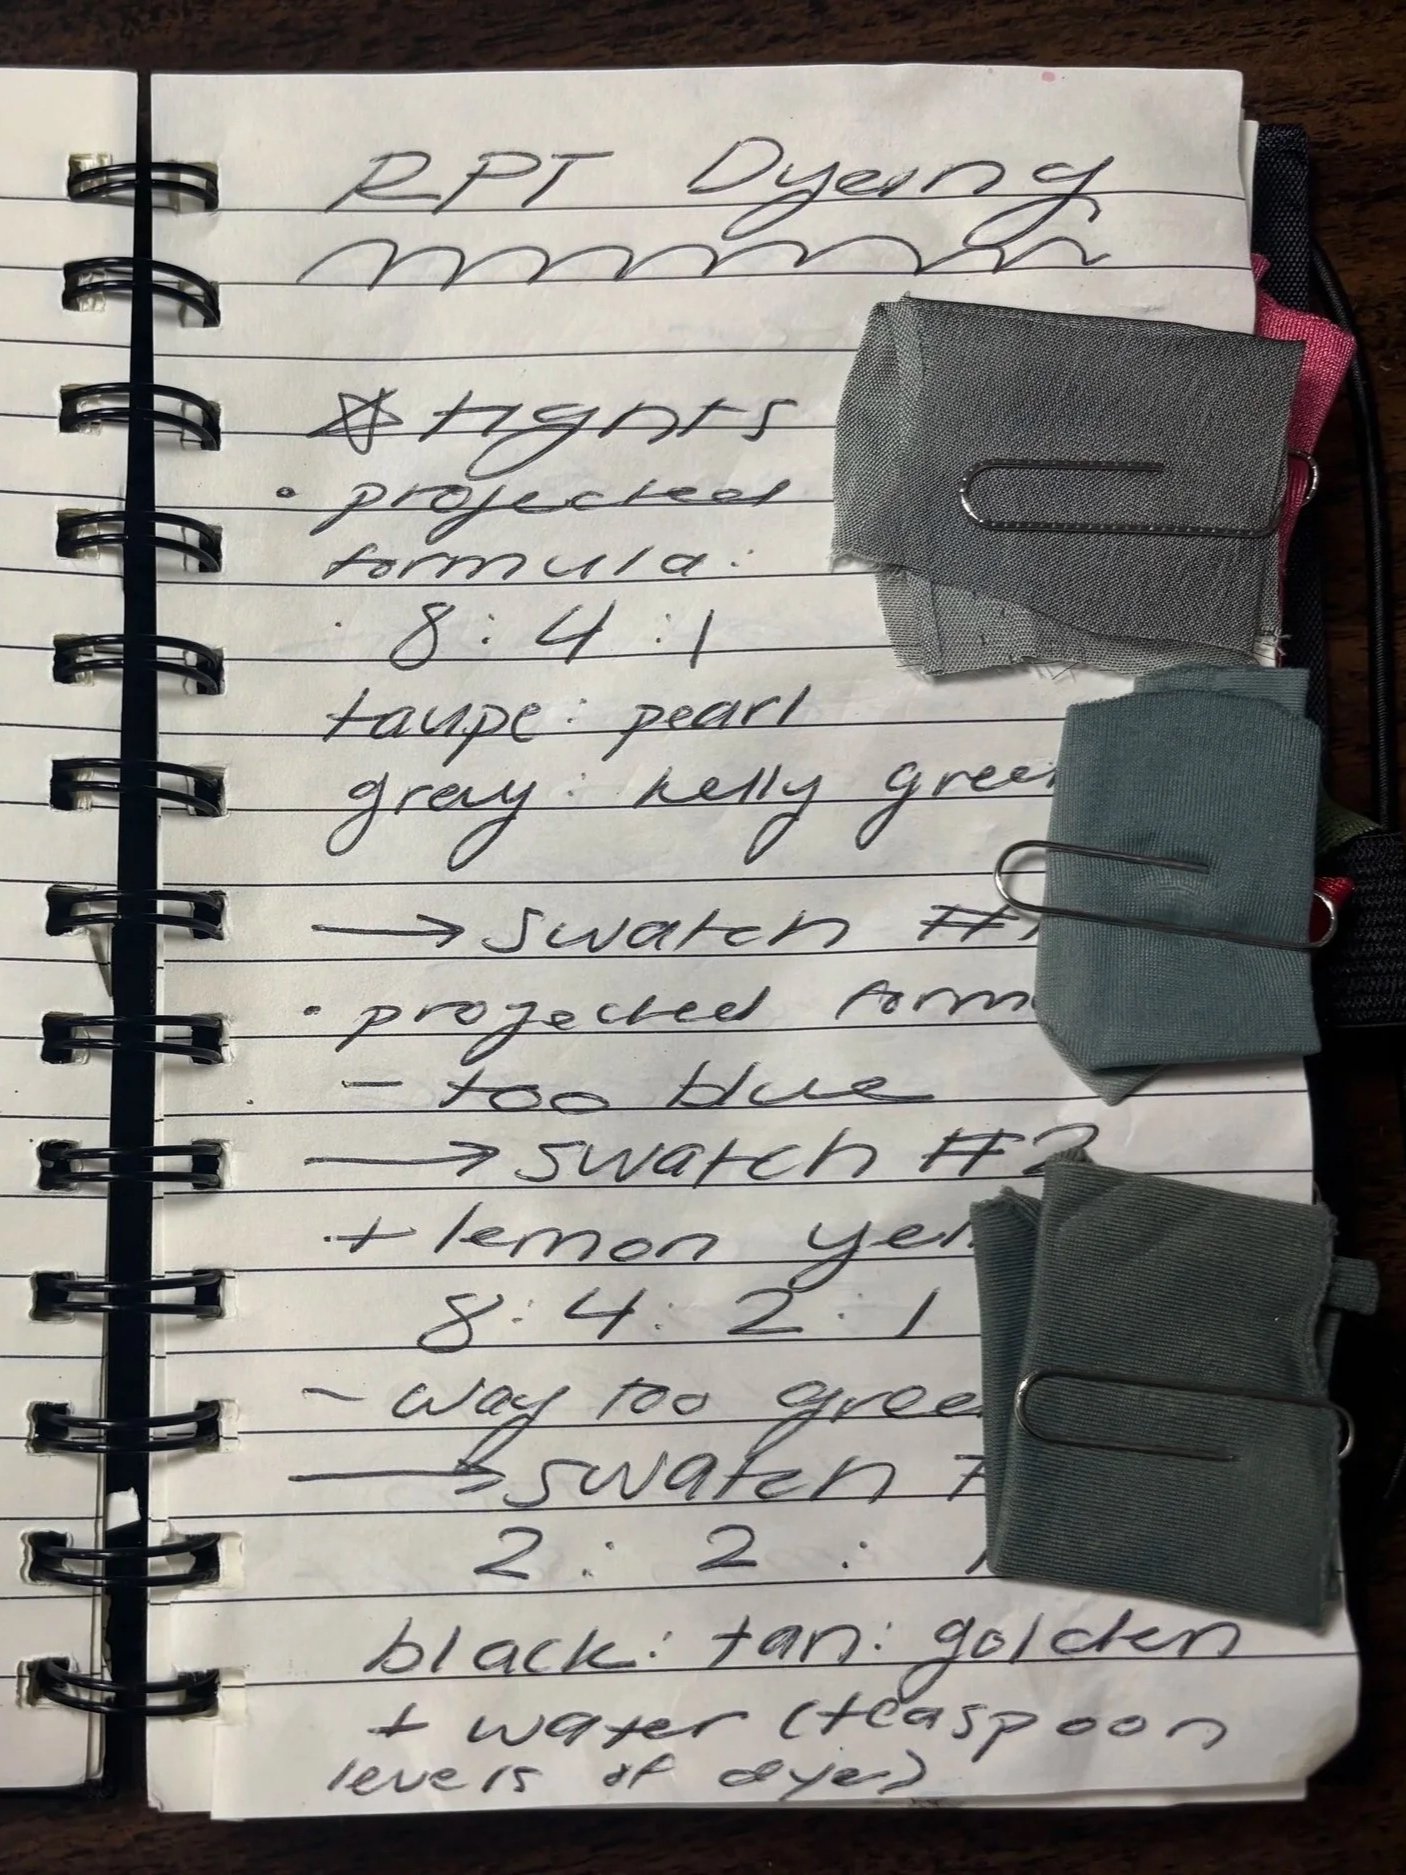 RPT Dyeing
☆ tights
• projected
formula:
8 : 4 : 1
taupe : pearl
grey : kelly gree
→ swatch #
• projected form
- too blue
→ swatch #2
+ lemon yel
8 : 4 : 2 : 1
- way too gree
→ swatch
2 : 2 :
black : tan : golden
+ water (teaspoon
levels of dye)